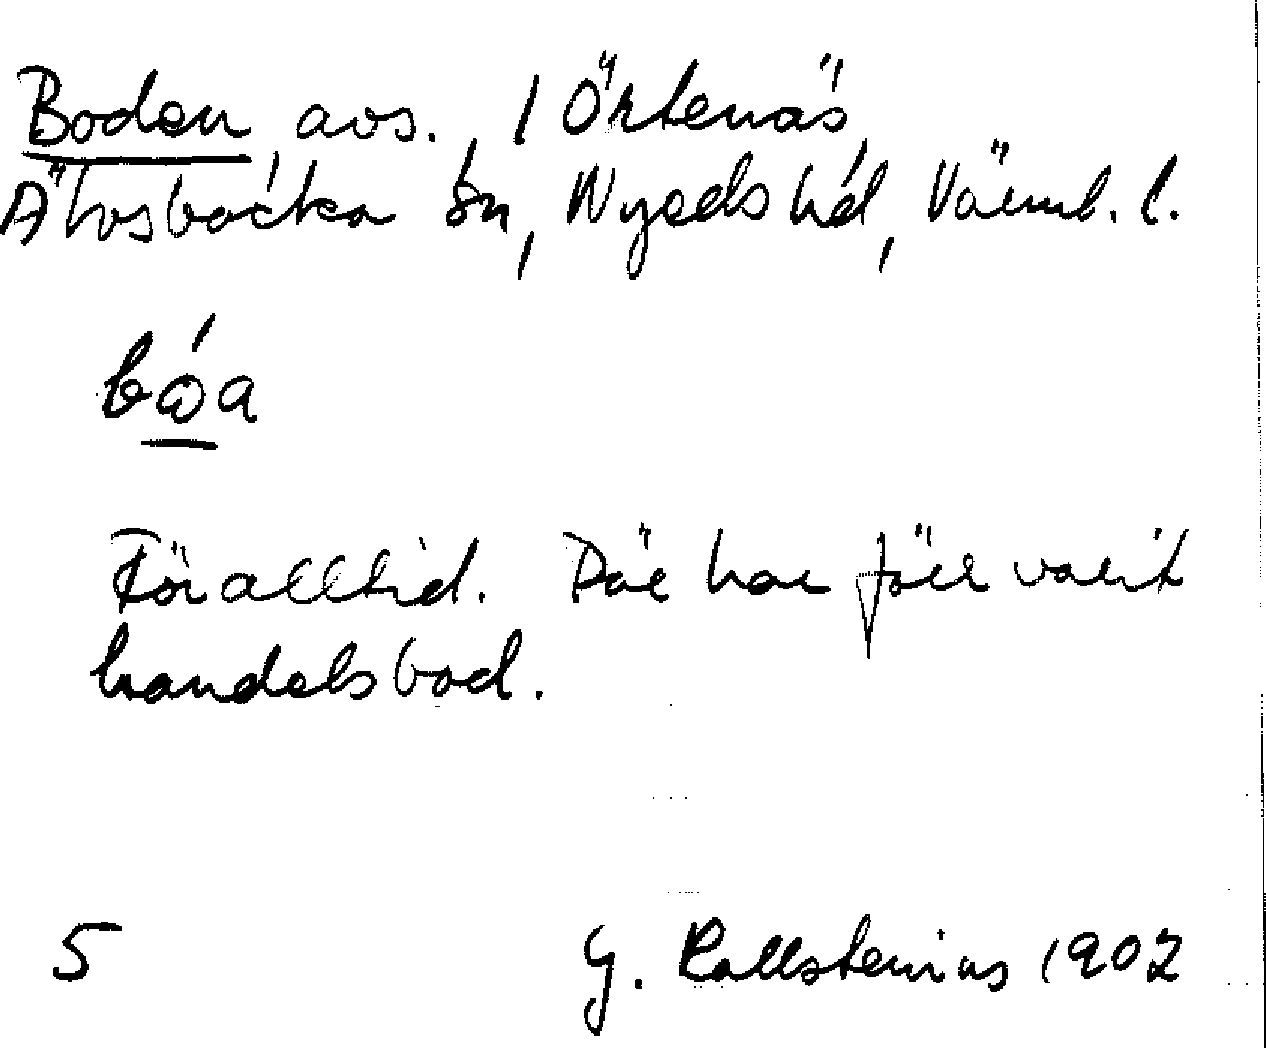 Boden avs. / Örtenäs,
Älvsbacka sn, Nyeds hd, Värml. l.
bó̲a
För alltid. Där har förr varit
handelsbod.
5 G. Kallstenius 1902